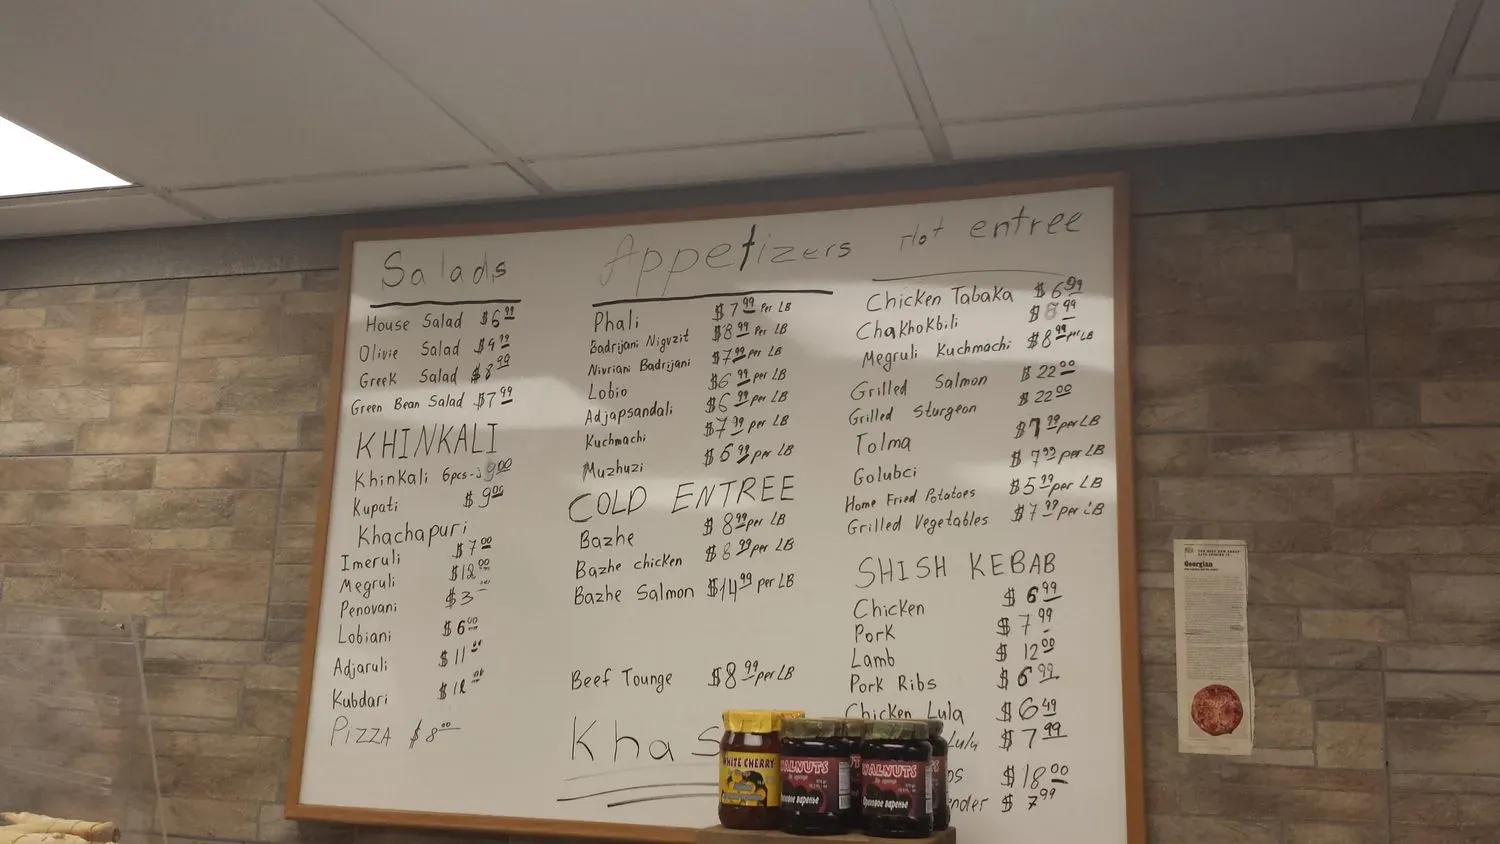 Salads
House Salad $6.99
Olivie Salad $4.99
Greek Salad $8.99
Green Bean Salad $7.99
KHINKALI
Khinkali 6pcs- 9.00
Kupati $9.00
Khachapuri
Imeruli $7.00
Megruli $12.00
Penovani $3
Lobiani $6.00
Adjaruli $11.00
Kubdari $12.00
PIZZA $8.00
Appetizers
Phali $7.99 Per LB
Badrijani Nigvzit $8.99 Per LB
Nivriani Badrijani $7.99 per LB
Lobio $6.99 per LB
Adjapsandali $6.99 per LB
Kuchmachi $7.99 per LB
Muzhuzi $6.99 per LB
COLD ENTREE
Bazhe $8.99 per LB
Bazhe chicken $8.99 per LB
Bazhe Salmon $14.99 per LB
Beef Tounge $8.99 per LB
Khas
Hot entree
Chicken Tabaka $6.99
Chakhokbili $8.99
Megruli Kuchmachi $8.99 per LB
Grilled Salmon $22.00
Grilled Sturgeon $22.00
Tolma $7.99 per LB
Golubci $7.99 per LB
Home Fried Potatoes $5.99 per LB
Grilled Vegetables $7.99 per LB
SHISH KEBAB
Chicken $6.99
Pork $7.99
Lamb $12.00
Pork Ribs $6.99
Chicken Lula $6.49
Lula $7.99
$18.00
$7.99
WHITE CHERRY
WALNUTS
Ореховое варенье
WALNUTS
Ореховое варенье
Georgian